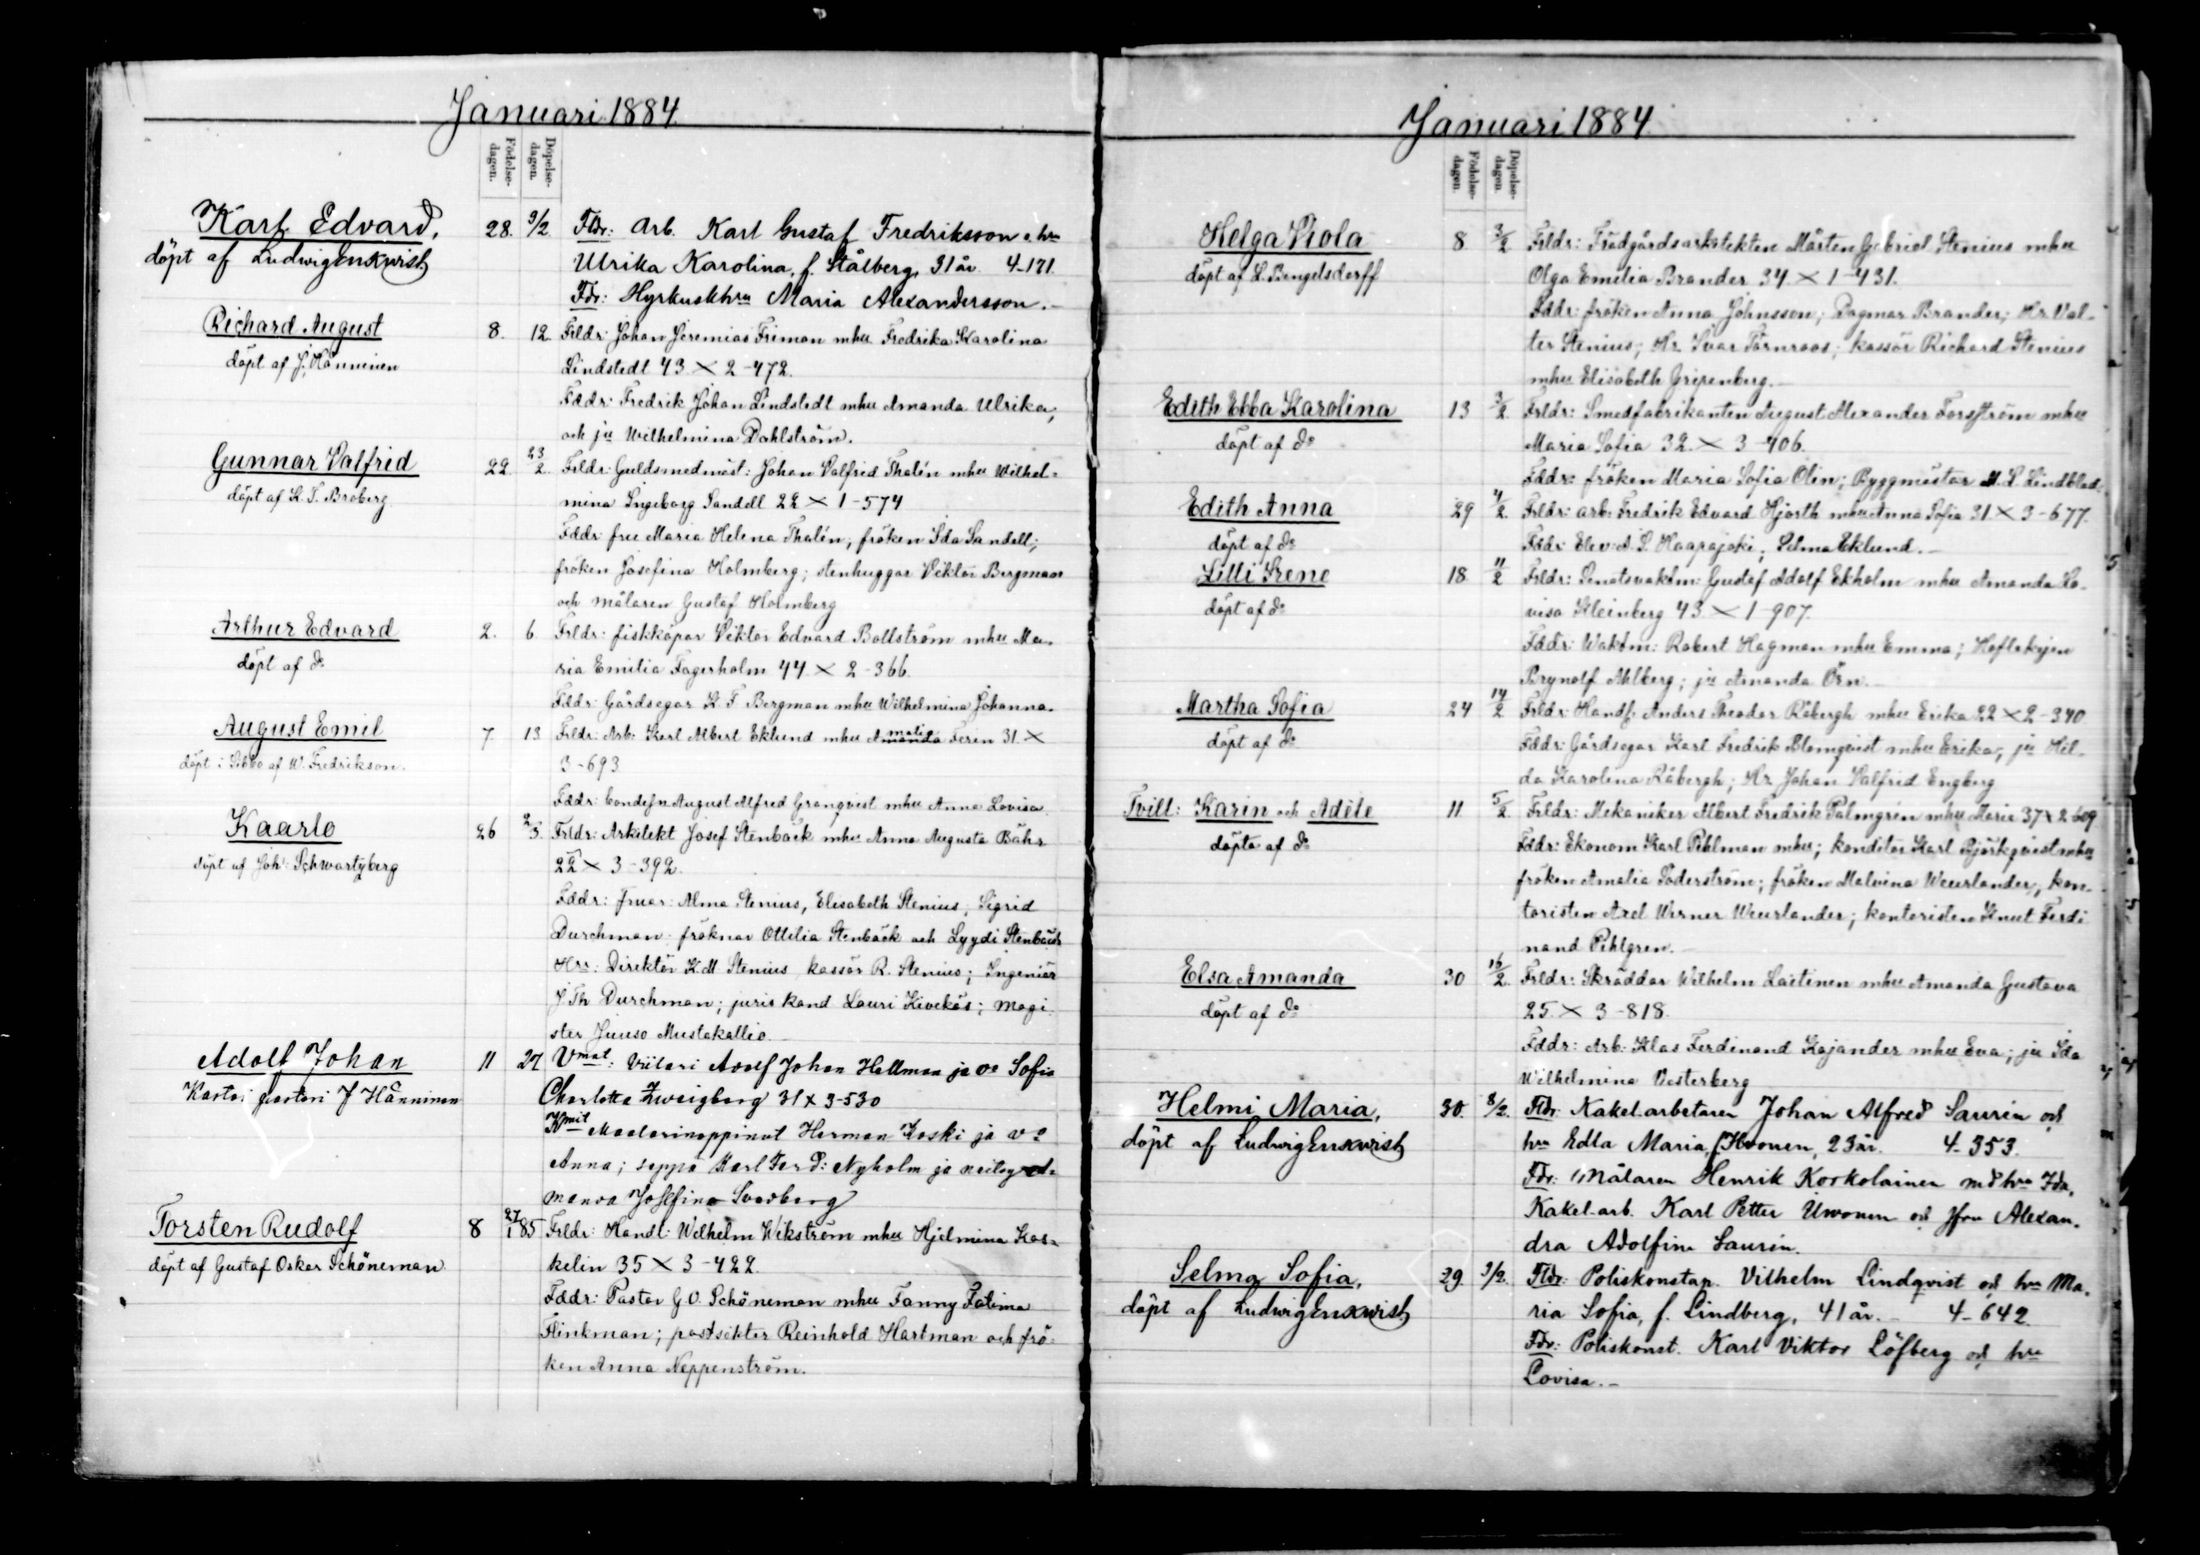 Januari 1884
Födelse-dagen. Döpelse-dagen.
Karl Edvard, 28. 9/2. Fldr: Arb. Karl Gustaf Fredriksson o. hu
döpt af Ludwig Enqvist Ulrika Karolina, f. Stålberg, 31 år. 4-171.
Fdr: Hyrkuskhu Maria Alexandersson.
Richard August 8. 12. Frldr: Johan Jeremias Friman mhu Fredrika Karolina
döpt af J. Hänninen Lindstedt 43 × 2-472.
Fddr: Fredrik Johan Lindstedt mhu Amanda Ulrika,
och ju Wilhelmina Dahlström.
Gunnar Valfrid 22. 23/2. Frldr: Guldsmedmäst: Johan Valfrid Thalén mhu Wilhel-
döpt af K. T. Broberg mina Ingeborg Sandell 22 × 1-574
Fddr: fru Maria Helena Thalén, fröken Ida Sandell;
fröken Josefina Holmberg; stenhuggar Viktor Bergman
och målaren Gustaf Holmberg
Arthur Edvard 2. 6 Frldr: fiskköpar Viktor Edvard Bollström mhu Ma-
döpt af do ria Emilia Fagerholm 44 × 2-366.
Fddr: Gårdsegar K. F. Bergman mhu Wilhelmina Johanna.
August Emil 7. 13 Frldr: Arb: Karl Albert Eklund mhu Amanda Feren 31 ×
döpt i Sibbo af W. Fredrikson. 3-693
Fddr: Condefn August Alfred Granqvist mhu Anna Lovisa
Kaarlo 26 2/3. Frldr: Arkitekt Josef Stenbäck mhu Anna Augusta Bähr
döpt af Joh: Schwartzberg 22 × 3-392.
Fddr: Fruar: Alma Stenius, Elisabeth Stenius, Sigrid
Durchman: fröknar Ottilia Stenbäck och Lyydi Stenbäck
Hrr: Direktör K M Stenius kassör R. Stenius; Ingeniör
J Th Durchman; juris kand Lauri Kivekäs; magi-
ster Juuso Mustakallio.
Adolf Johan 11 27 Vmat: Viilari Adolf Johan Hellman ja vo Sofia
Kastoi pastori J Hänninen Charlotta Zweigberg 31 × 3-530
Kmit Maalarinoppinut Herman Koski ja vo
Anna; seppä Karl Ferd: Nyholm ja neitsy A-
manda Josefina Svedberg
Torsten Rudolf 8 27/1 85 Frldr: Handl: Wilhelm Wikström mhu Hjelmina Kas-
döpt af Gustaf Oskar Schöneman kelin 35 × 3-422.
Fddr: Pastor G O. Schöneman mhu Fanny Fatima
Flinkman; postsikter Reinhold Hartman och frö-
ken Anna Neppenström.
Januari 1884
Födelse-dagen. Döpelse-dagen.
Helga Viola 8 3/2 Frldr: Trädgårdsarkitekten Mårten Gabriel Stenius mhu
döpt af L. Bengelsdorff Olga Emilia Brander 34 × 1-431.
Fddr: fröken Anna Johnsson; Dagmar Brander; Hr. Val-
ter Stenius; Hr. Ivar Törnroos; kassör Richard Stenius
mhu Elisabeth Gripenberg.
Edith Ebba Karolina 13 3/2. Frldr: Smedfabrikanten August Alexander Forsström mhu
döpt af do Maria Sofia 32 × 3-406.
Fddr: fröken Maria Sofia Olin; Byggmästar M. L. Lindblad.
Edith Anna 29 4/2. Frldr: arb: Fredrik Edvard Hjorth mhu Anna Sofia 31 × 3-677.
döpt af do Fddr: Elev: A. S. Haapajoki; Selma Eklund.
Lilli Irene 18. 11/2 Frldr: Senatsvaktm: Gustaf Adolf Ekholm mhu Amanda Lo-
döpt af do visa Kleinberg 43 × 1-907.
Fddr: Waktm: Robert Hagman mhu Emma;
Brynolf Ahlberg; ju Amanda Örn.
Martha Sofia 24 14/2 Frldr: Handl: Anders Theodor Råbergh mhu Erika 22 × 2-340
döpt af do Fddr: Gårdsegar Karl Fredrik Blomqvist mhu Erika; ju Hil-
da Karolina Råbergh; Hr Johan Valfrid Engberg
Tvill: Karin och Adéle 11 5/2 Frldr: Mekaniker Albert Fredrik Palmgrén mhu Maria 37 × 2-609
döpta af do Fddr: Ekonom Karl Pihlman mhu; konditor Karl Björkqvist mhu
fröken Amalia Söderström; fröken Malvina Weurlander, kon-
toristen Axel Werner Weurlander; kontoristen Knut Ferdi-
nand Pihlgren.
Elsa Amanda 30 16/2. Frldr: Skräddar Wilhelm Laitinen mhu Amanda Gustava
döpt af do 25 × 3-818.
Fddr: Arb: Klas Ferdinand Kajander mhu Eva; ju Ida
Wilhelmina Vesterberg
Helmi Maria, 30. 8/2. Fldr: Kakelarbetaren Johan Alfred Saurén och
döpt af Ludwig Enqvist hu Edla Maria, f. Huonen, 23 år. 4-353.
Fdr: Målaren Henrik Korkolainen md hu Ida,
Kakel-arb. Karl Petter Uwonen och jfru Alexan-
dra Adolfina Saurén.
Selma Sofia, 29. 9/2. Fldr: Poliskonstap. Vilhelm Lindqvist och hu Ma-
döpt af Ludwig Enqvist ria Sofia, f. Lindberg, 41 år. 4-642
Fdr: Poliskonst. Karl Viktor Löfberg och hu
Lovisa.